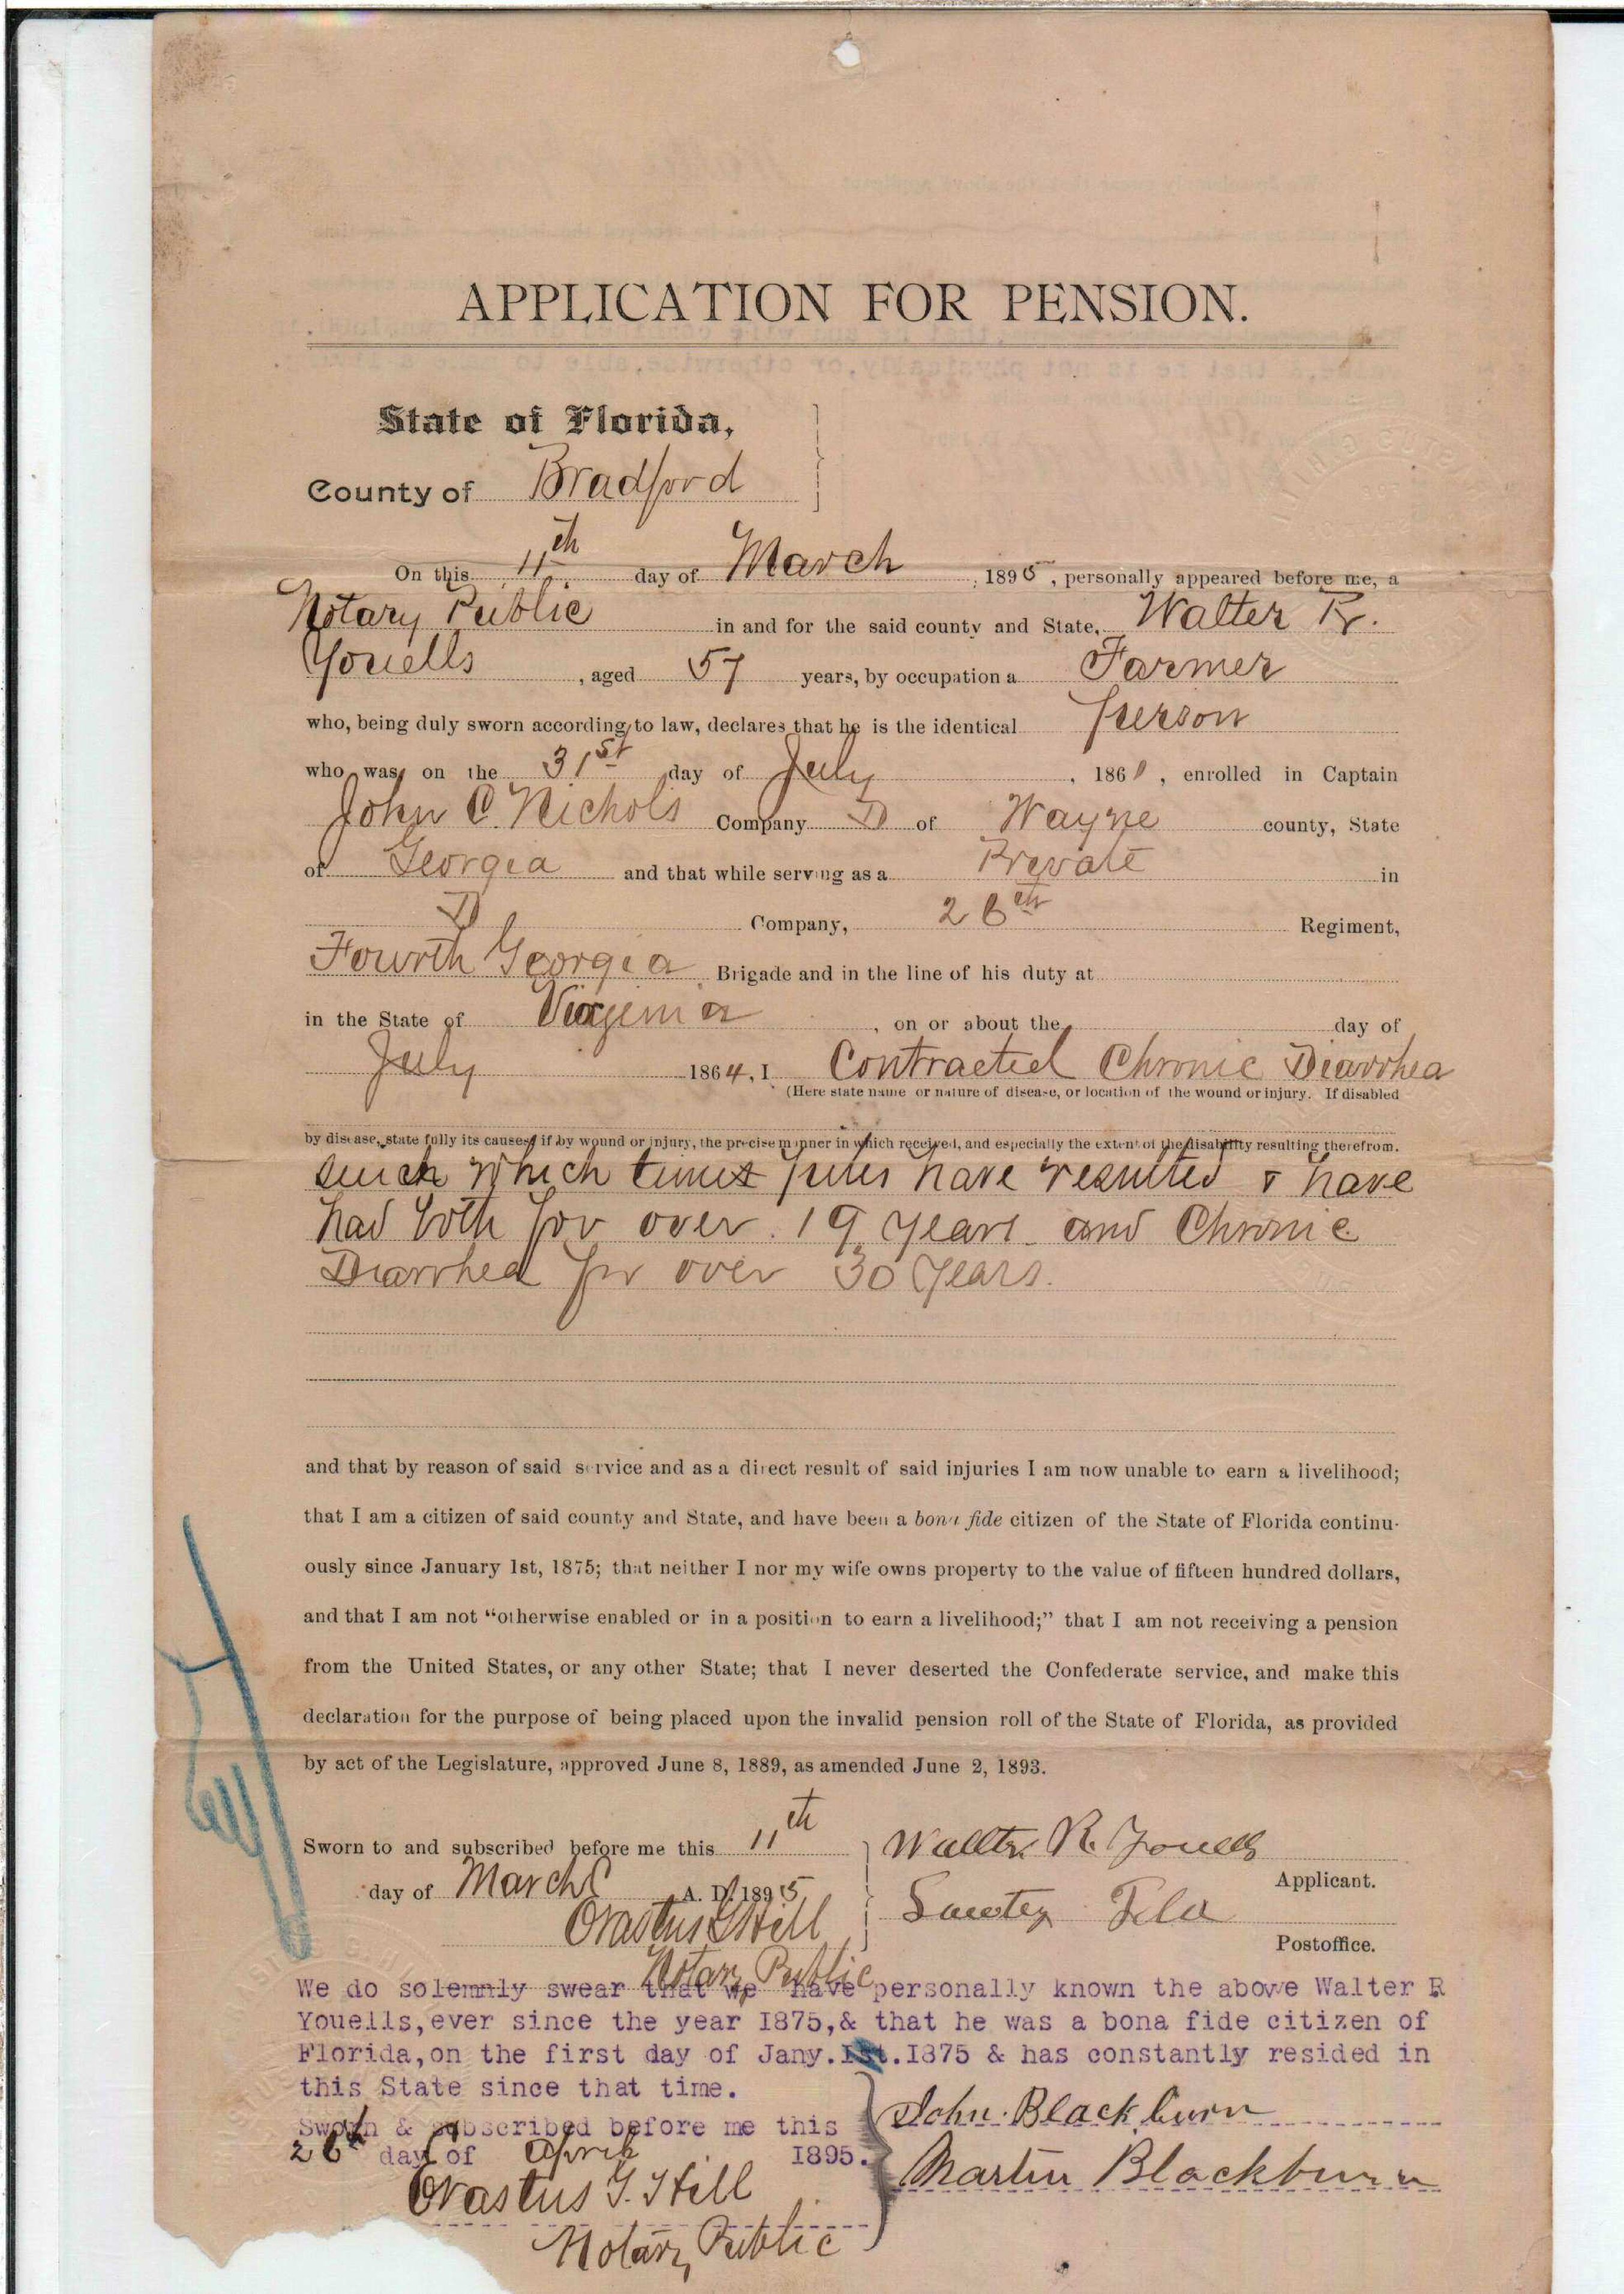 APPLICATION FOR PENSION.
State of Florida,
County of Bradford
On this 11th day of March, 1895, personally appeared before me, a
Notary Public in and for the said county and State, Walter R.
Youells, aged 57 years, by occupation a Farmer
who, being duly sworn according to law, declares that he is the identical Person
who was on the 31st day of July, 1861, enrolled in Captain
John C. Nichols Company D of Wayne county, State
of Georgia and that while serving as a Private in
D Company, 26th Regiment,
Fourth Georgia Brigade and in the line of his duty at
in the State of Virginia, on or about the day of
July 1864, I Contracted Chronic Diarrhea
(Here state name or nature of disease, or location of the wound or injury. If disabled
by disease, state fully its causes; if by wound or injury, the precise manner in which received, and especially the extent of the disability resulting therefrom.
since which times piles have resulted & have
had both for over 19 years and Chronic
Diarrhea for over 30 years.
and that by reason of said service and as a direct result of said injuries I am now unable to earn a livelihood;
that I am a citizen of said county and State, and have been a bona fide citizen of the State of Florida continu-
ously since January 1st, 1875; that neither I nor my wife owns property to the value of fifteen hundred dollars,
and that I am not "otherwise enabled or in a position to earn a livelihood;" that I am not receiving a pension
from the United States, or any other State; that I never deserted the Confederate service, and make this
declaration for the purpose of being placed upon the invalid pension roll of the State of Florida, as provided
by act of the Legislature, approved June 8, 1889, as amended June 2, 1893.
Sworn to and subscribed before me this 11th
day of March A. D. 1895
Walter R. Youells
Applicant.
Erastus G. Hill
Notary Public
Fla
Postoffice.
We do solemnly swear that we have personally known the above Walter R
Youells,ever since the year 1875,& that he was a bona fide citizen of
Florida,on the first day of Jany.1st.1875 & has constantly resided in
this State since that time.
Sworn & subscribed before me this
26th day of April 1895.
John Blackburn
Martin Blackburn
Erastus G. Hill
Notary Public